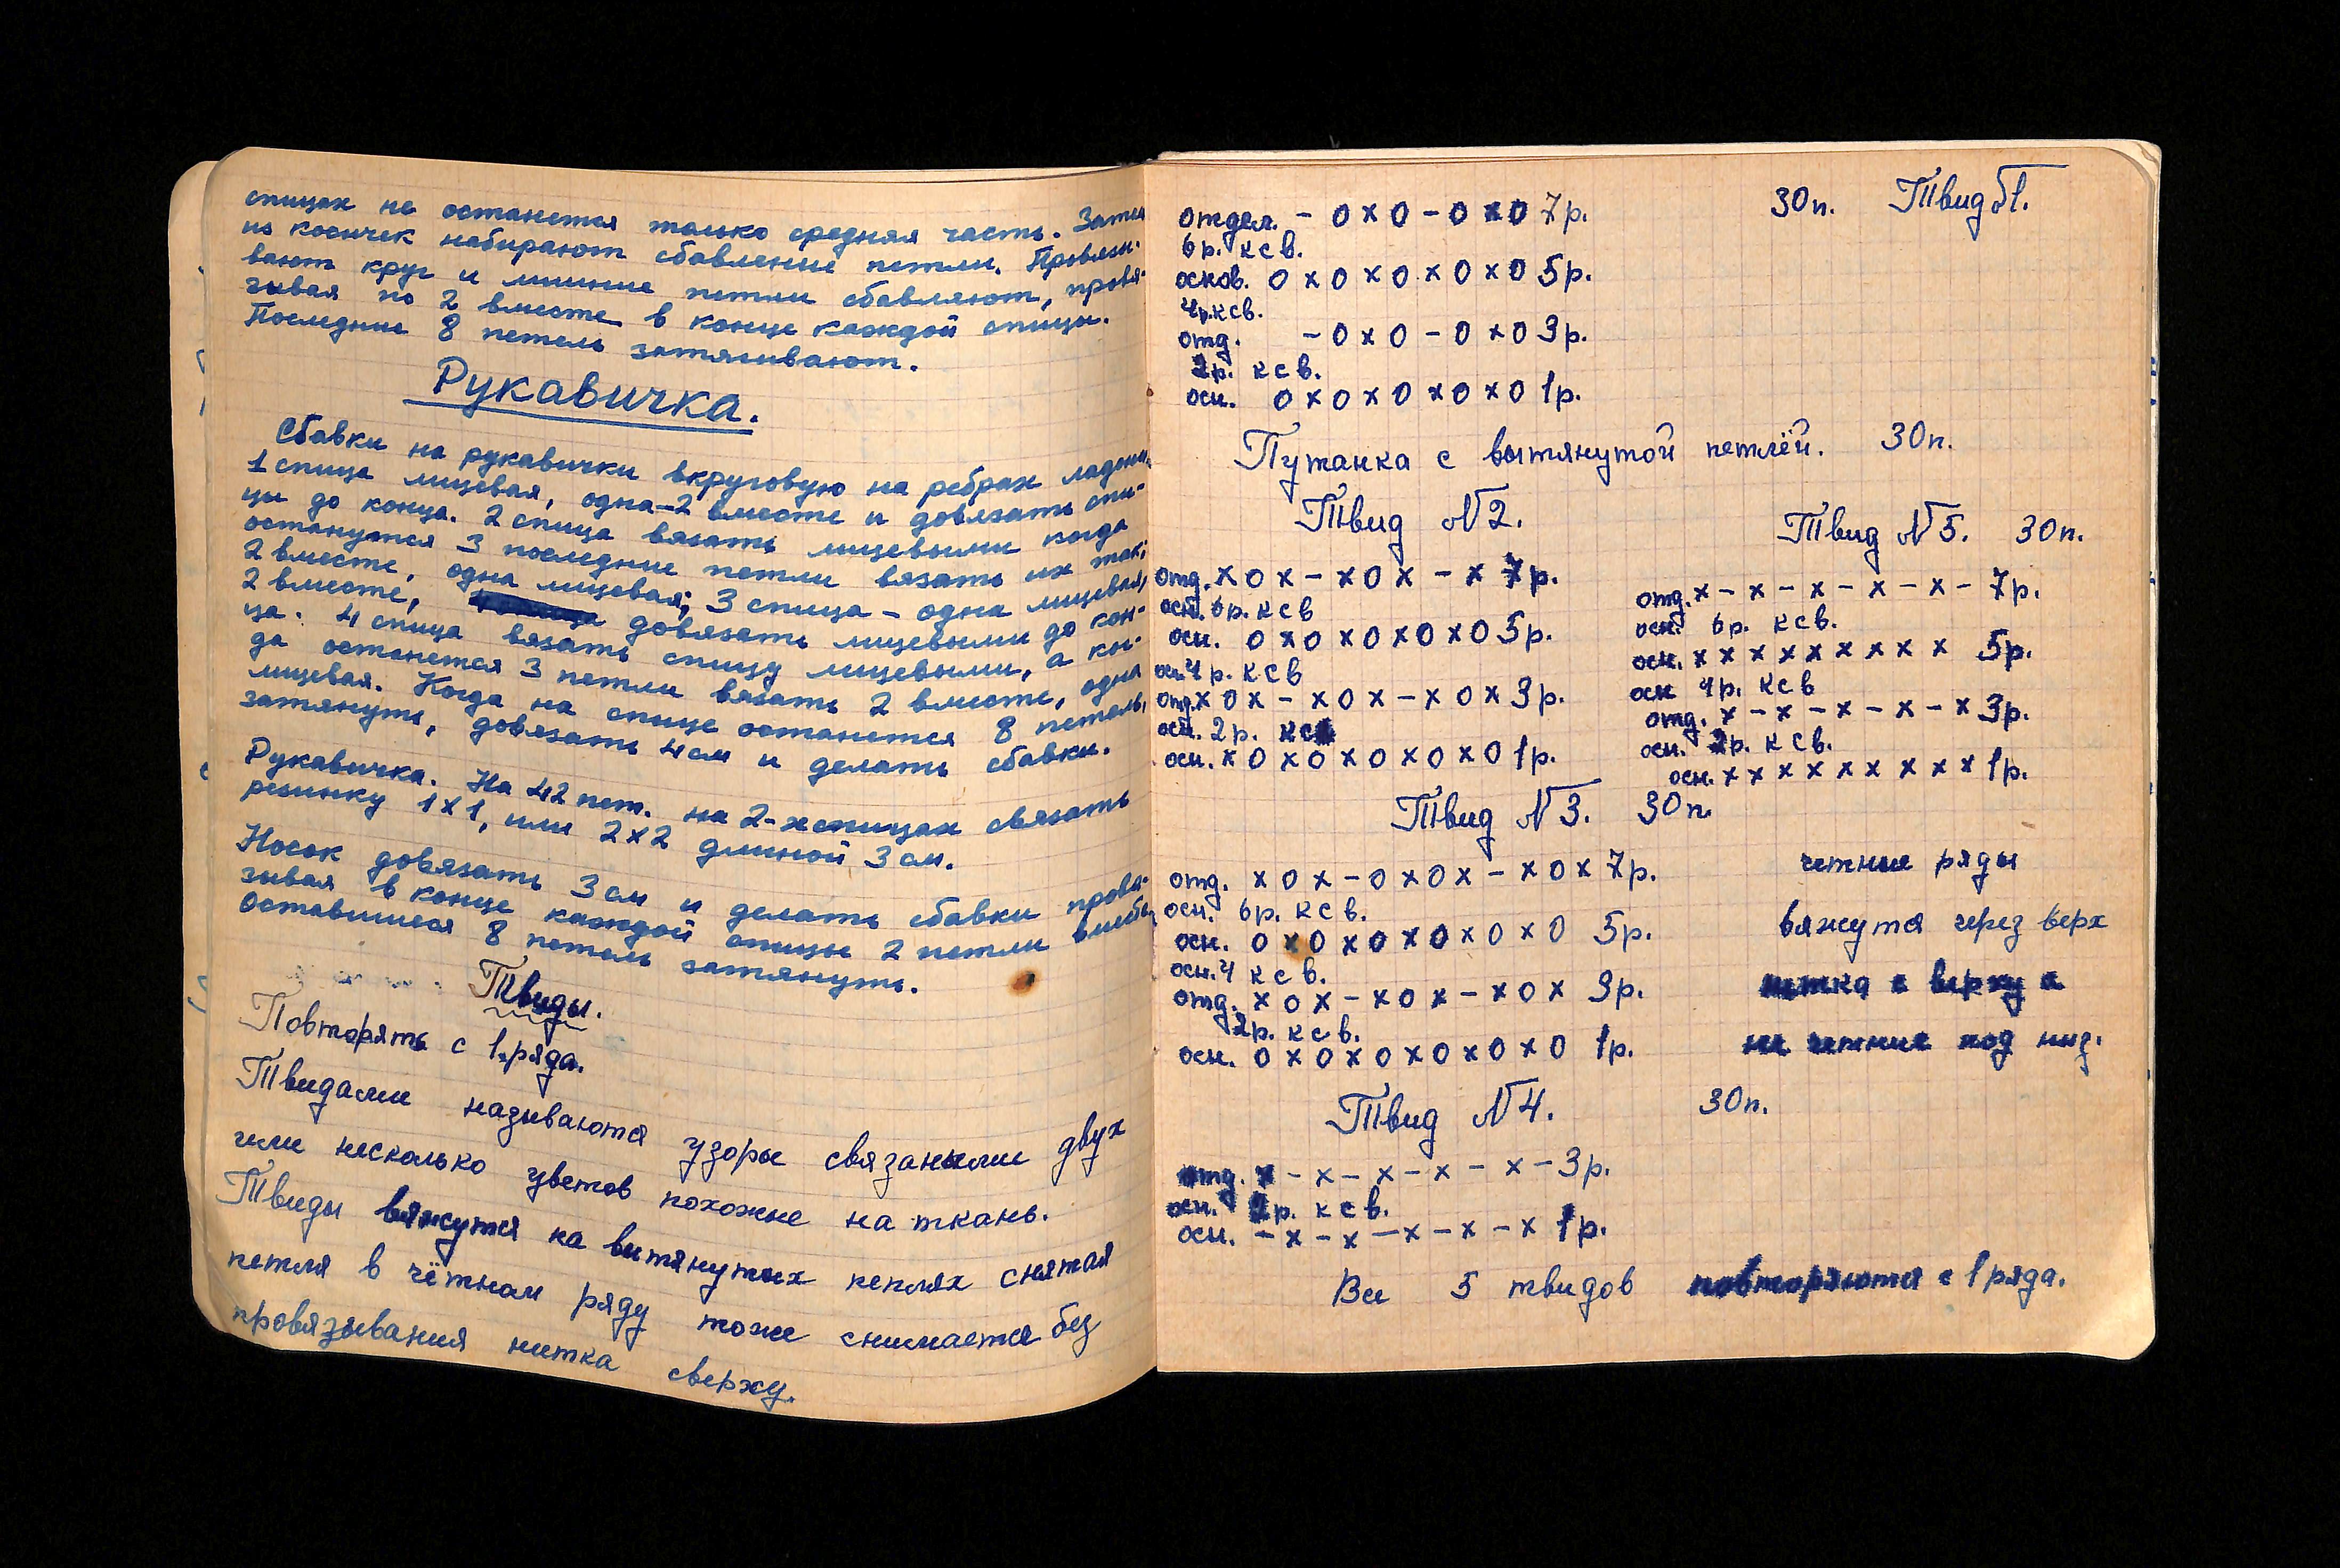 спицах не останется только средняя часть. Затем
из косичек набирают сбавление петли. Провязы-
вают круг и лишние петли сбавляют, провя-
зывая по 2 вместе в конце каждой спицы.
Последние 8 петель затягивают.
Рукавичка.
Сбавки на рукавички вкруговую на ребрах ладони.
1 спица лицевая, одна-2 вместе и довязать спи-
цы до конца. 2 спица вязать лицевыми когда
останутся 3 последние петли вязать их так:
2 вместе, одна лицевая; 3 спица - одна лицевая,
2 вместе, довязать лицевыми до кон-
ца. 4 спица вязать спицу лицевыми, а ког-
да останется 3 петли вязать 2 вместе, одна
лицевая. Когда на спице останется 8 петель,
затянуть, довязать 4 см и делать сбавки.
Рукавичка. На 42 пет. на 2-х спицах связать
резинку 1х1, или 2х2 длиной 3 см.
Носок довязать 3 см и делать сбавки провя-
зывая в конце каждой спицы 2 петли вместе,
Оставшиеся 8 петель затянуть.
Твиды.
Повторять с 1.ряда.
Твидами называются узоры связаными двух
или несколько цветов похожие на ткань.
Твиды вяжутся на вытянутых петлях снятая
петля в чётном ряду тоже снимается без
провязывания нитка сверху.
30п. Твид №1.
отдел. - 0 х 0 - 0 х 0 7р.
6р. ксв.
основ. 0 х 0 х 0 х 0 х 0 5р.
4р.ксв.
отд. - 0 х 0 - 0 х 0 3р.
2р. ксв.
осн. 0 х 0 х 0 х 0 х 0 1р.
Путанка с вытянутой петлёй. 30п.
Твид №2.
отд. х 0 х - х 0 х - х 7р.
осн. 6р. ксв
осн. 0 х 0 х 0 х 0 х 0 5р.
ос.4р. ксв
отд. х 0 х - х 0 х - х 0 х 3р.
осн. 2р.
осн. х 0 х 0 х 0 х 0 х 0 1р.
Твид №5. 30п.
отд. х - х - х - х - х - 7р.
осн. 6р. ксв.
осн. х х х х х х х х х 5р.
осн 4р. ксв
отд. х - х - х - х - х 3р.
осн. 2р. ксв.
осн. х х х х х х х х х 1р.
Твид №3. 30п.
отд. х 0 х - 0 х 0 х - х 0 х 7р.
осн. 6р. ксв.
осн. 0 х 0 х 0 х 0 х 0 х 0 5р.
осн.4 ксв.
отд. х 0 х - х 0 х - х 0 х 3р.
2р. ксв.
осн. 0 х 0 х 0 х 0 х 0 х 0 1р.
четные ряды
вяжутся через верх
нитка с верху а
не четние под низ.
Твид №4. 30п.
отд. х - х - х - х - х - 3р.
осн. 2р. ксв.
осн. - х - х - х - х - х 1р.
Все 5 твидов повторяются с 1 ряда.